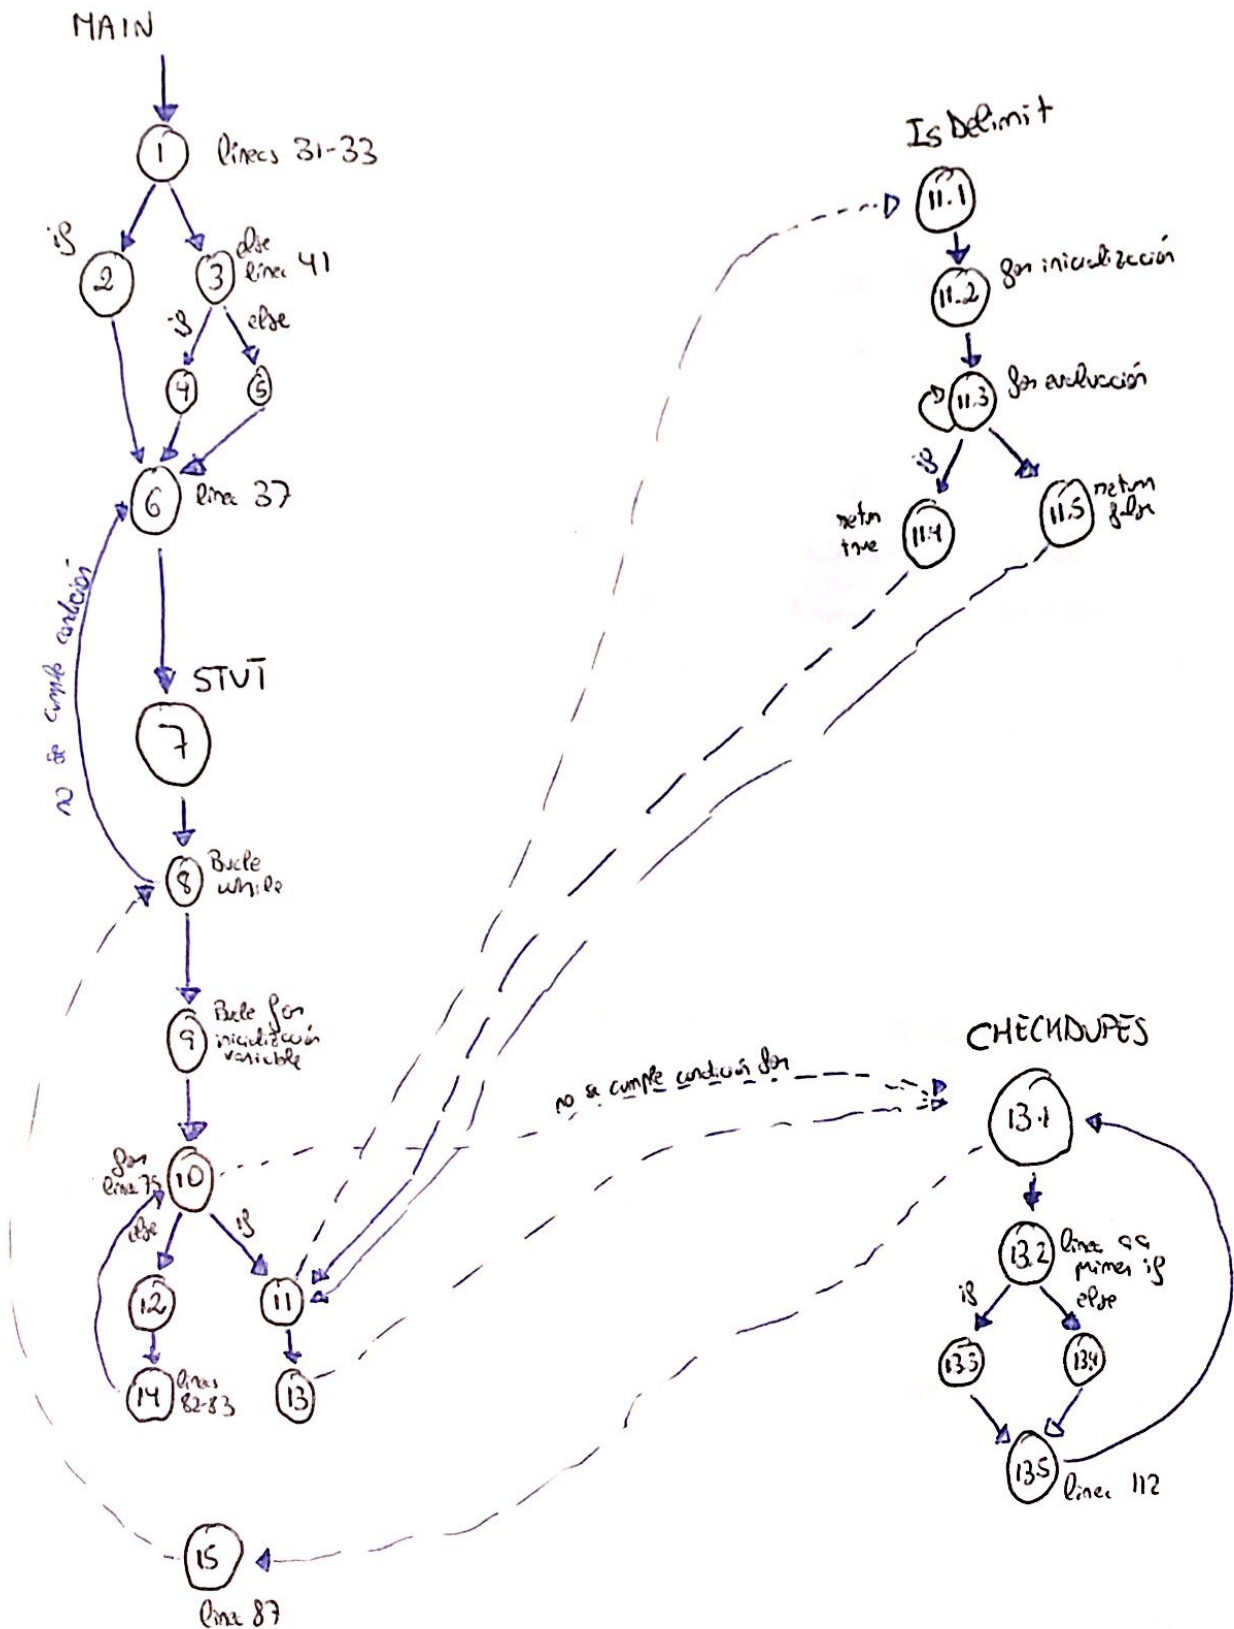 MAIN
1 líneas 31-33
if
2
3
else
línea 41
if
else
4
5
6 línea 37
no se cumple condición
STUT
7
8
Bucle
while
9
Bucle for
inicialización
variable
for
línea 75
10
else
if
12
11
14
líneas
82-83
13
15
línea 87
IsDelimit
11.1
11.2 for inicialización
11.3 for evaluación
if
return
true
11.4
11.5
return
false
no se cumple condición for
CHECKDUPES
13.1
13.2
línea 99
primer if
if
else
13.3
13.4
13.5
línea 112